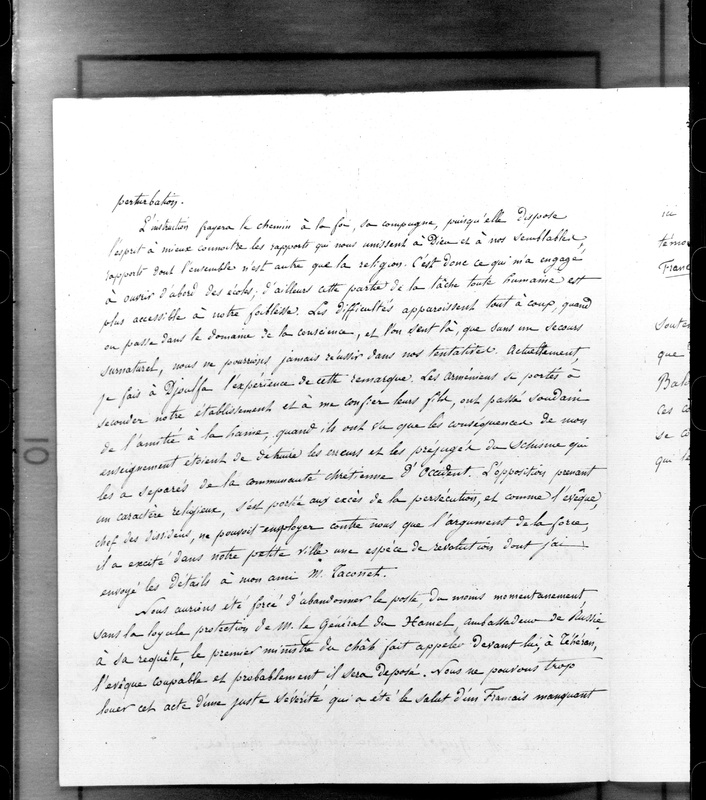 perturbation.
L'instruction frayera le chemin à la foi, sa compagne, puisqu'elle dispose
l'esprit à mieux connoitre les rapports qui nous unissent à Dieu et à nos semblables,
rapports dont l'ensemble n'est autre que la religion. C'est donc ce qui m'a engagé
à ouvrir d'abord des écoles, d'ailleurs cette partie de la tâche toute humaine est
plus accessible à notre foiblesse. Les difficultés apparoissent tout à coup, quand
on passe dans le domaine de la conscience, et l'on sent là, que sans un secours
surnaturel, nous ne pourrions jamais réussir dans nos tentatives. Actuellement,
je fais à Djoulfa l'expérience de cette remarque. Les Arméniens si portés à
seconder notre établissement et à me confier leurs fils, ont passé soudain
de l'amitié à la haine, quand ils ont vu que les conséquences de mon
enseignement étoient de détruire les erreurs et les préjugés du schisme qui
les a separés de la communauté chrétienne d'Occident. L'opposition prenant
un caractère religieux, s'est portée aux excès de la persécution, et comme l'evêque,
chef des dissidens, ne pouvoit employer contre nous que l'argument de la force,
il a excité dans notre petite ville une espèce de révolution dont j'ai
envoyé les détails à mon ami M. Taconet.
Nous aurions été forcé d'abandonner le poste, du moins momentanement
sans la loyale protection de M. le Général du Hamel, ambassadeur de Russie
à sa requête, le premier ministre du châh fait appeler devant lui, à Téhéran,
l'evêque coupable et probablement il sera deposé. Nous ne pouvons trop
louer cet acte d'une juste sévérité qui a été le salut d'un Francais manquant
ici
témoi
Franc
Souten
que
Bal
ces c
se c
qui l
10